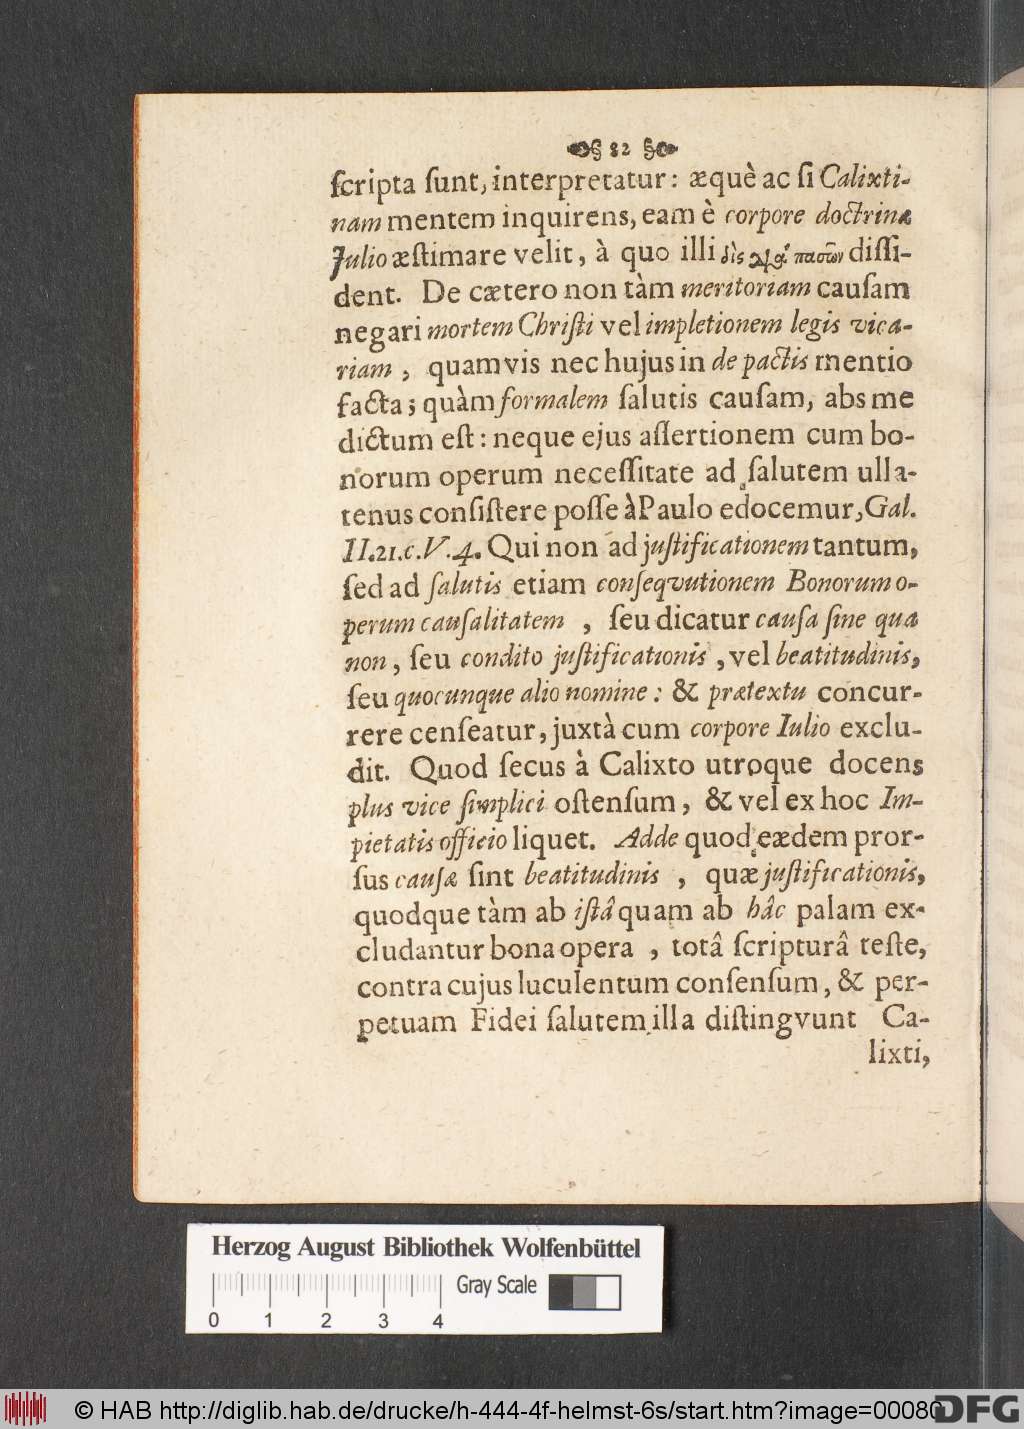 82
ſcripta ſunt, interpretatur: æquè ac ſi Calixti-
nam mentem inquirens, eam è corpore doctrinæ
Julio æſtimare velit, à quo illi δὶς διὰ πασῶν diſſi-
dent. De cætero non tàm meritoriam cauſam
negari mortem Chriſti vel impletionem legis vica-
riam, quamvis nec hujus in de pactis mentio
facta; quàm formalem ſalutis cauſam, abs me
dictum eſt: neque ejus aſſertionem cum bo-
norum operum neceſſitate ad ſalutem ulla-
tenus conſiſtere poſſe à Paulo edocemur, Gal.
II. 21. c. V. 4. Qui non ad juſtificationem tantum,
ſed ad ſalutis etiam conſeqvutionem Bonorum o-
perum cauſalitatem, ſeu dicatur cauſa ſine qua
non, ſeu condito juſtificationis, vel beatitudinis,
ſeu quocunque alio nomine: & prætextu concur-
rere cenſeatur, juxtà cum corpore Iulio exclu-
dit. Quod ſecus à Calixto utroque docens
plus vice ſimplici oſtenſum, & vel ex hoc Im-
pietatis officio liquet. Adde quod eædem pror-
ſus cauſæ ſint beatitudinis, quæ juſtificationis,
quodque tàm ab iſtâ quam ab hâc palam ex-
cludantur bona opera, totâ ſcripturâ teſte,
contra cujus luculentum conſenſum, & per-
petuam Fidei ſalutem illa diſtingvunt Ca-
lixti,
Herzog August Bibliothek Wolfenbüttel
Gray Scale
0 1 2 3 4
© HAB http://diglib.hab.de/drucke/h-444-4f-helmst-6s/start.htm?image=00080
DFG